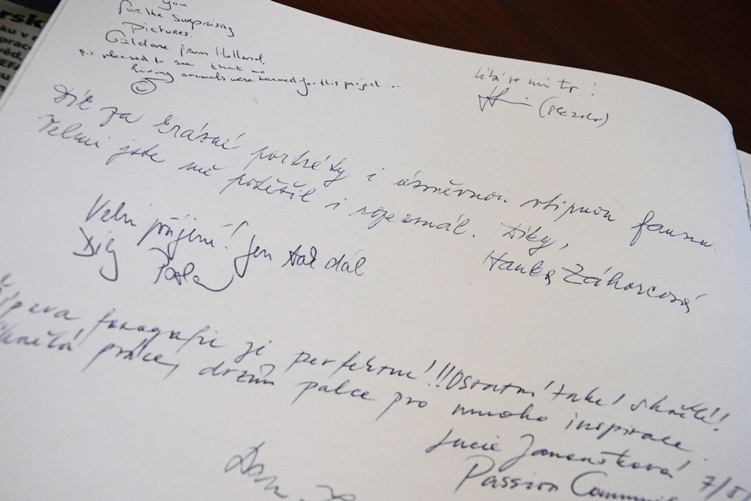 you
for the surprising
pictures.
from Holland.
pleased to see that no
living animals were harmed for this project...
Líbí se mi to!
Dík za krásné portréty i úsměvnou vtipnou faunu.
Velmi jste mě potěšil i rozesmál. Díky,
Hanka Záhorcová
Velmi příjemné! Jen tak dál
Díky
fotografie je perfektní!!! Ostatní také! skvělé!
Skvělá práce, držím palce pro mnoho inspirace.
Lucie
7/5
Passion